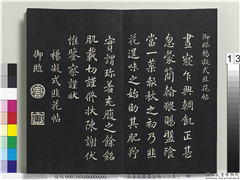 御臨楊凝式韭花帖
晝寢乍興朝飢正甚
忽蒙簡翰猥賜盤飧
當一葉報秋之初乃韭
花逞味之始助其肥羜
實謂珍羞充腹之餘銘
肌載切謹修狀陳謝伏
惟鑒察謹狀
楊凝式韭花帖
御臨